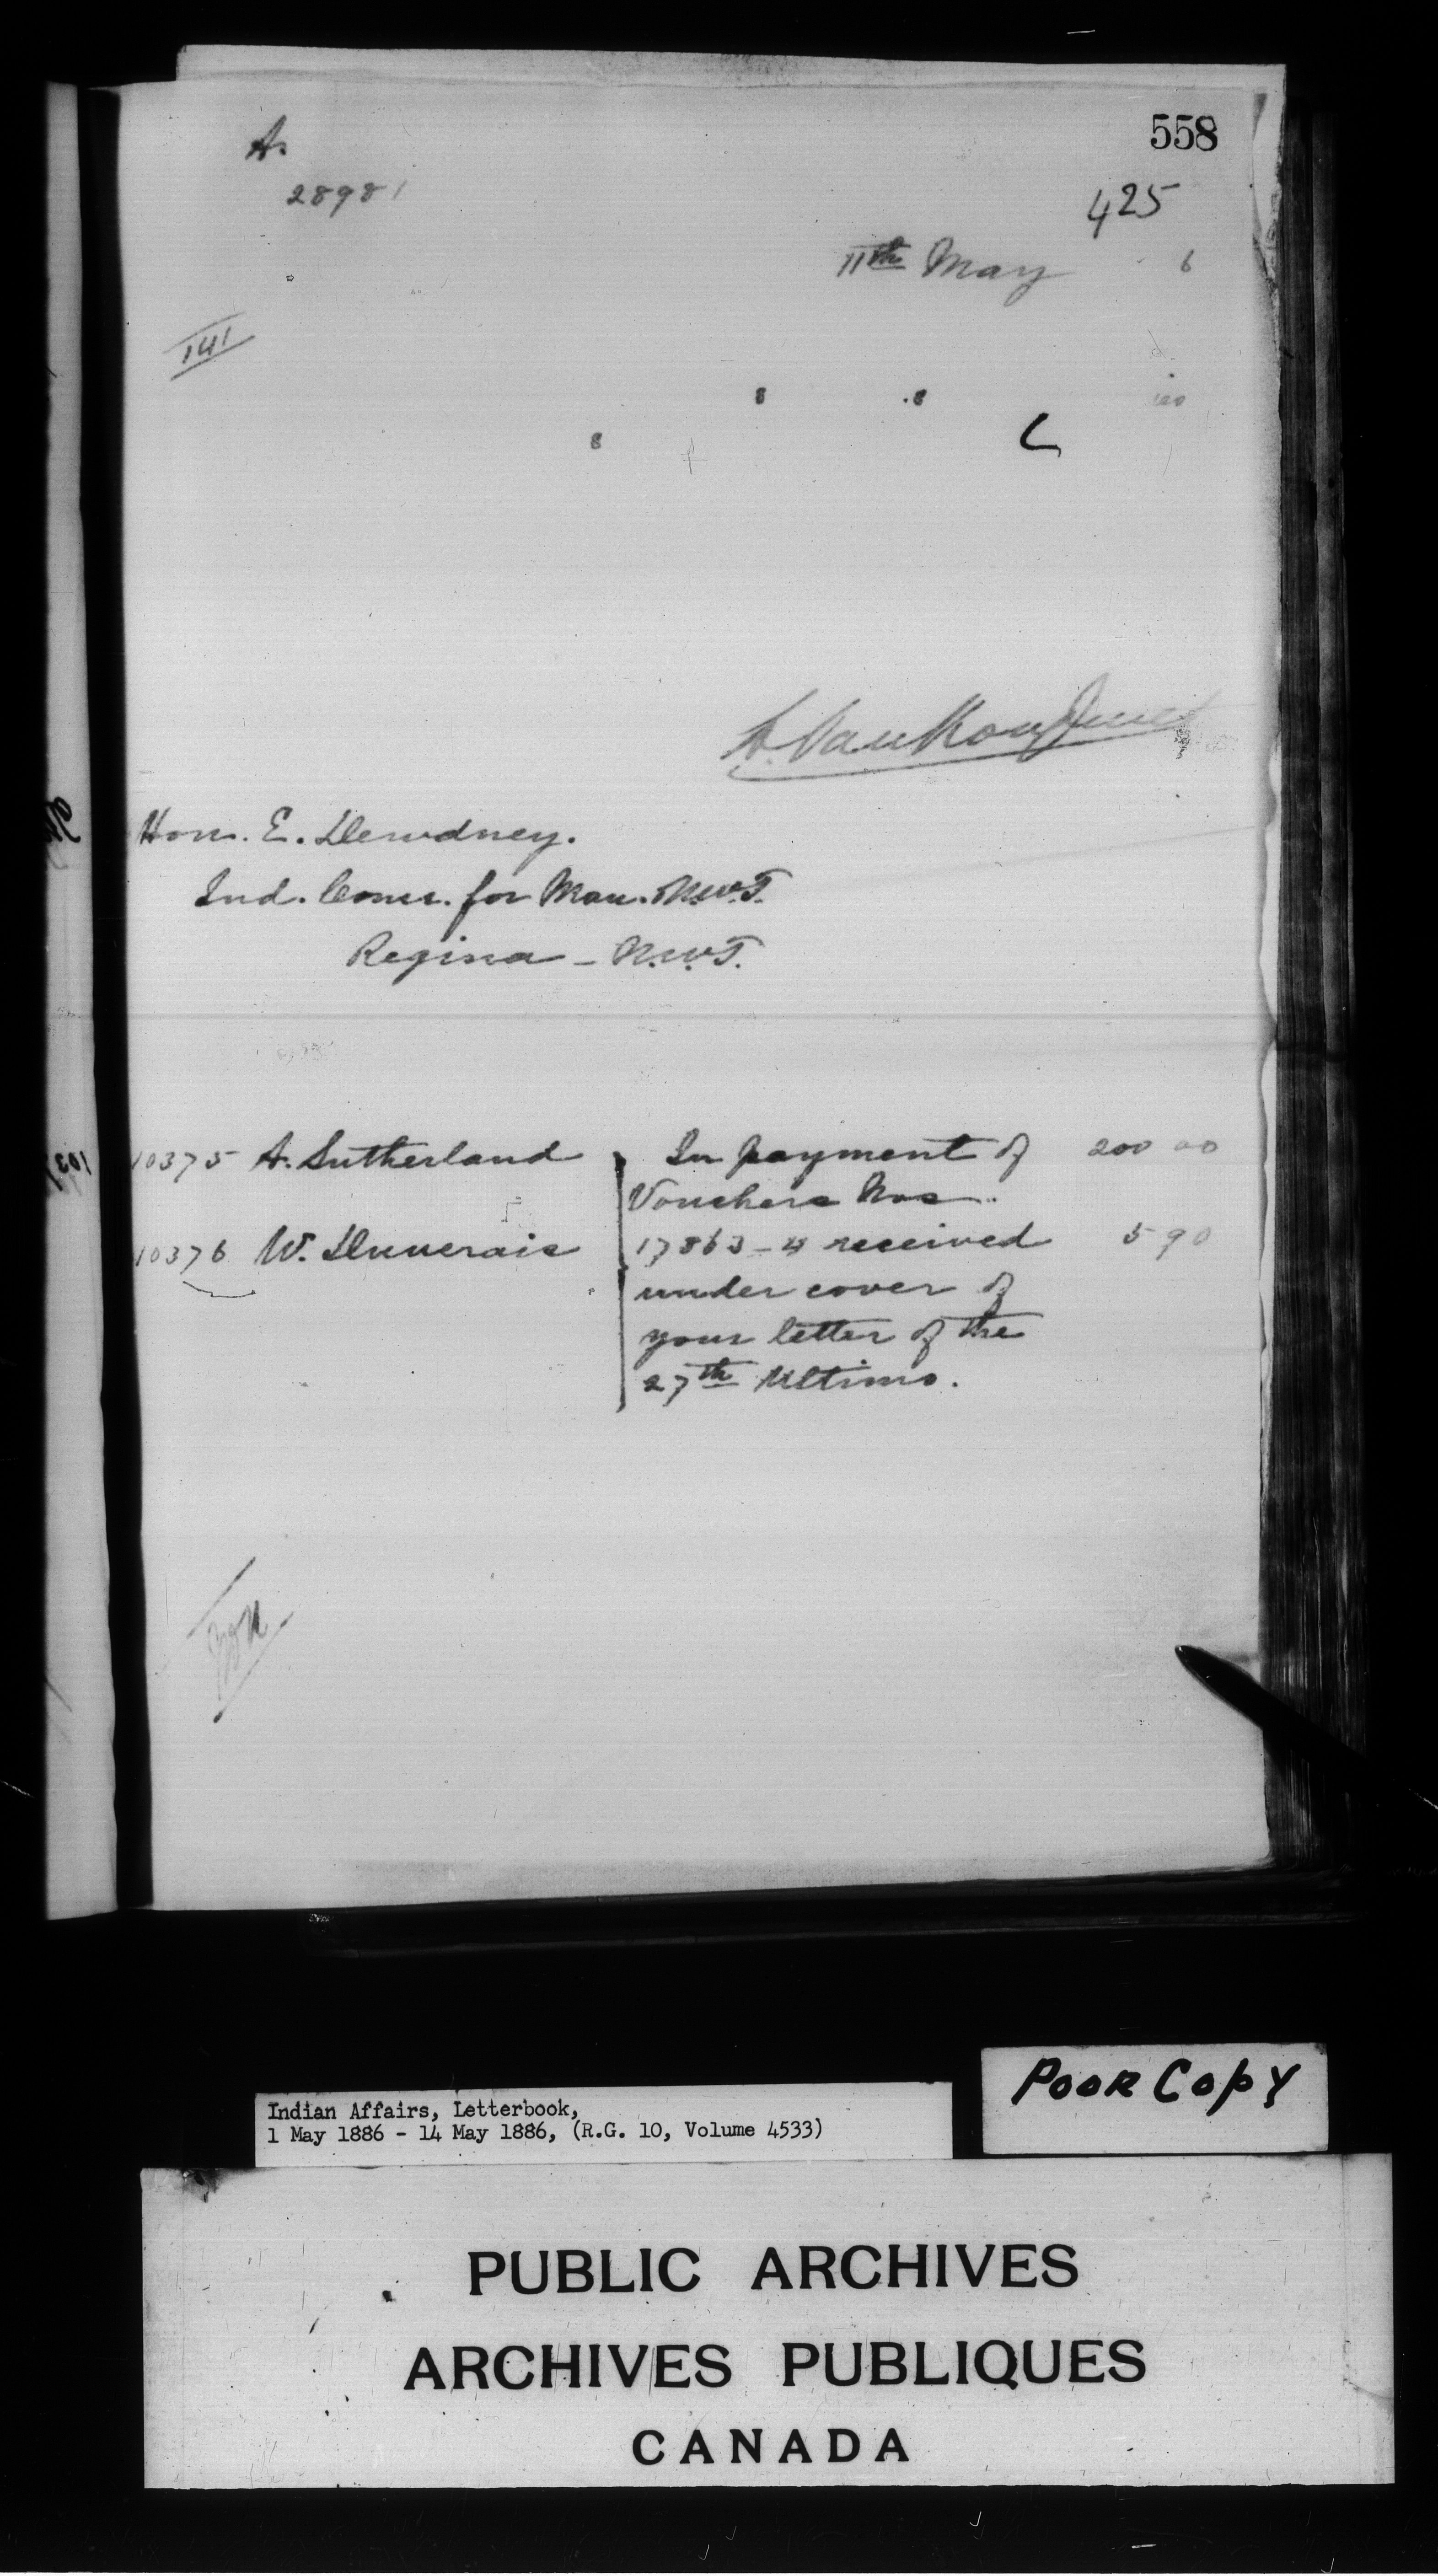 558
A.
28981
425
11th May 6
141
8 .8
8
A. VanKoughnet
Hon. E. Dewdney.
Ind. Comr. for Man. N.W.T.
Regina - N.W.T.
10375 A. Sutherland In payment of 200 00
Vouchers Nos
10376 W. Duverais 17863-4 received 5 90
under cover of
your letter of the
27th Ultimo.
Indian Affairs, Letterbook,
1 May 1886 - 14 May 1886, (R.G. 10, Volume 4533)
POOR COPY
PUBLIC ARCHIVES
ARCHIVES PUBLIQUES
CANADA